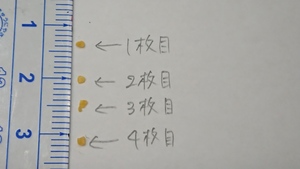 1
←1枚目
2
←2枚目
←3枚目
3
←4枚目